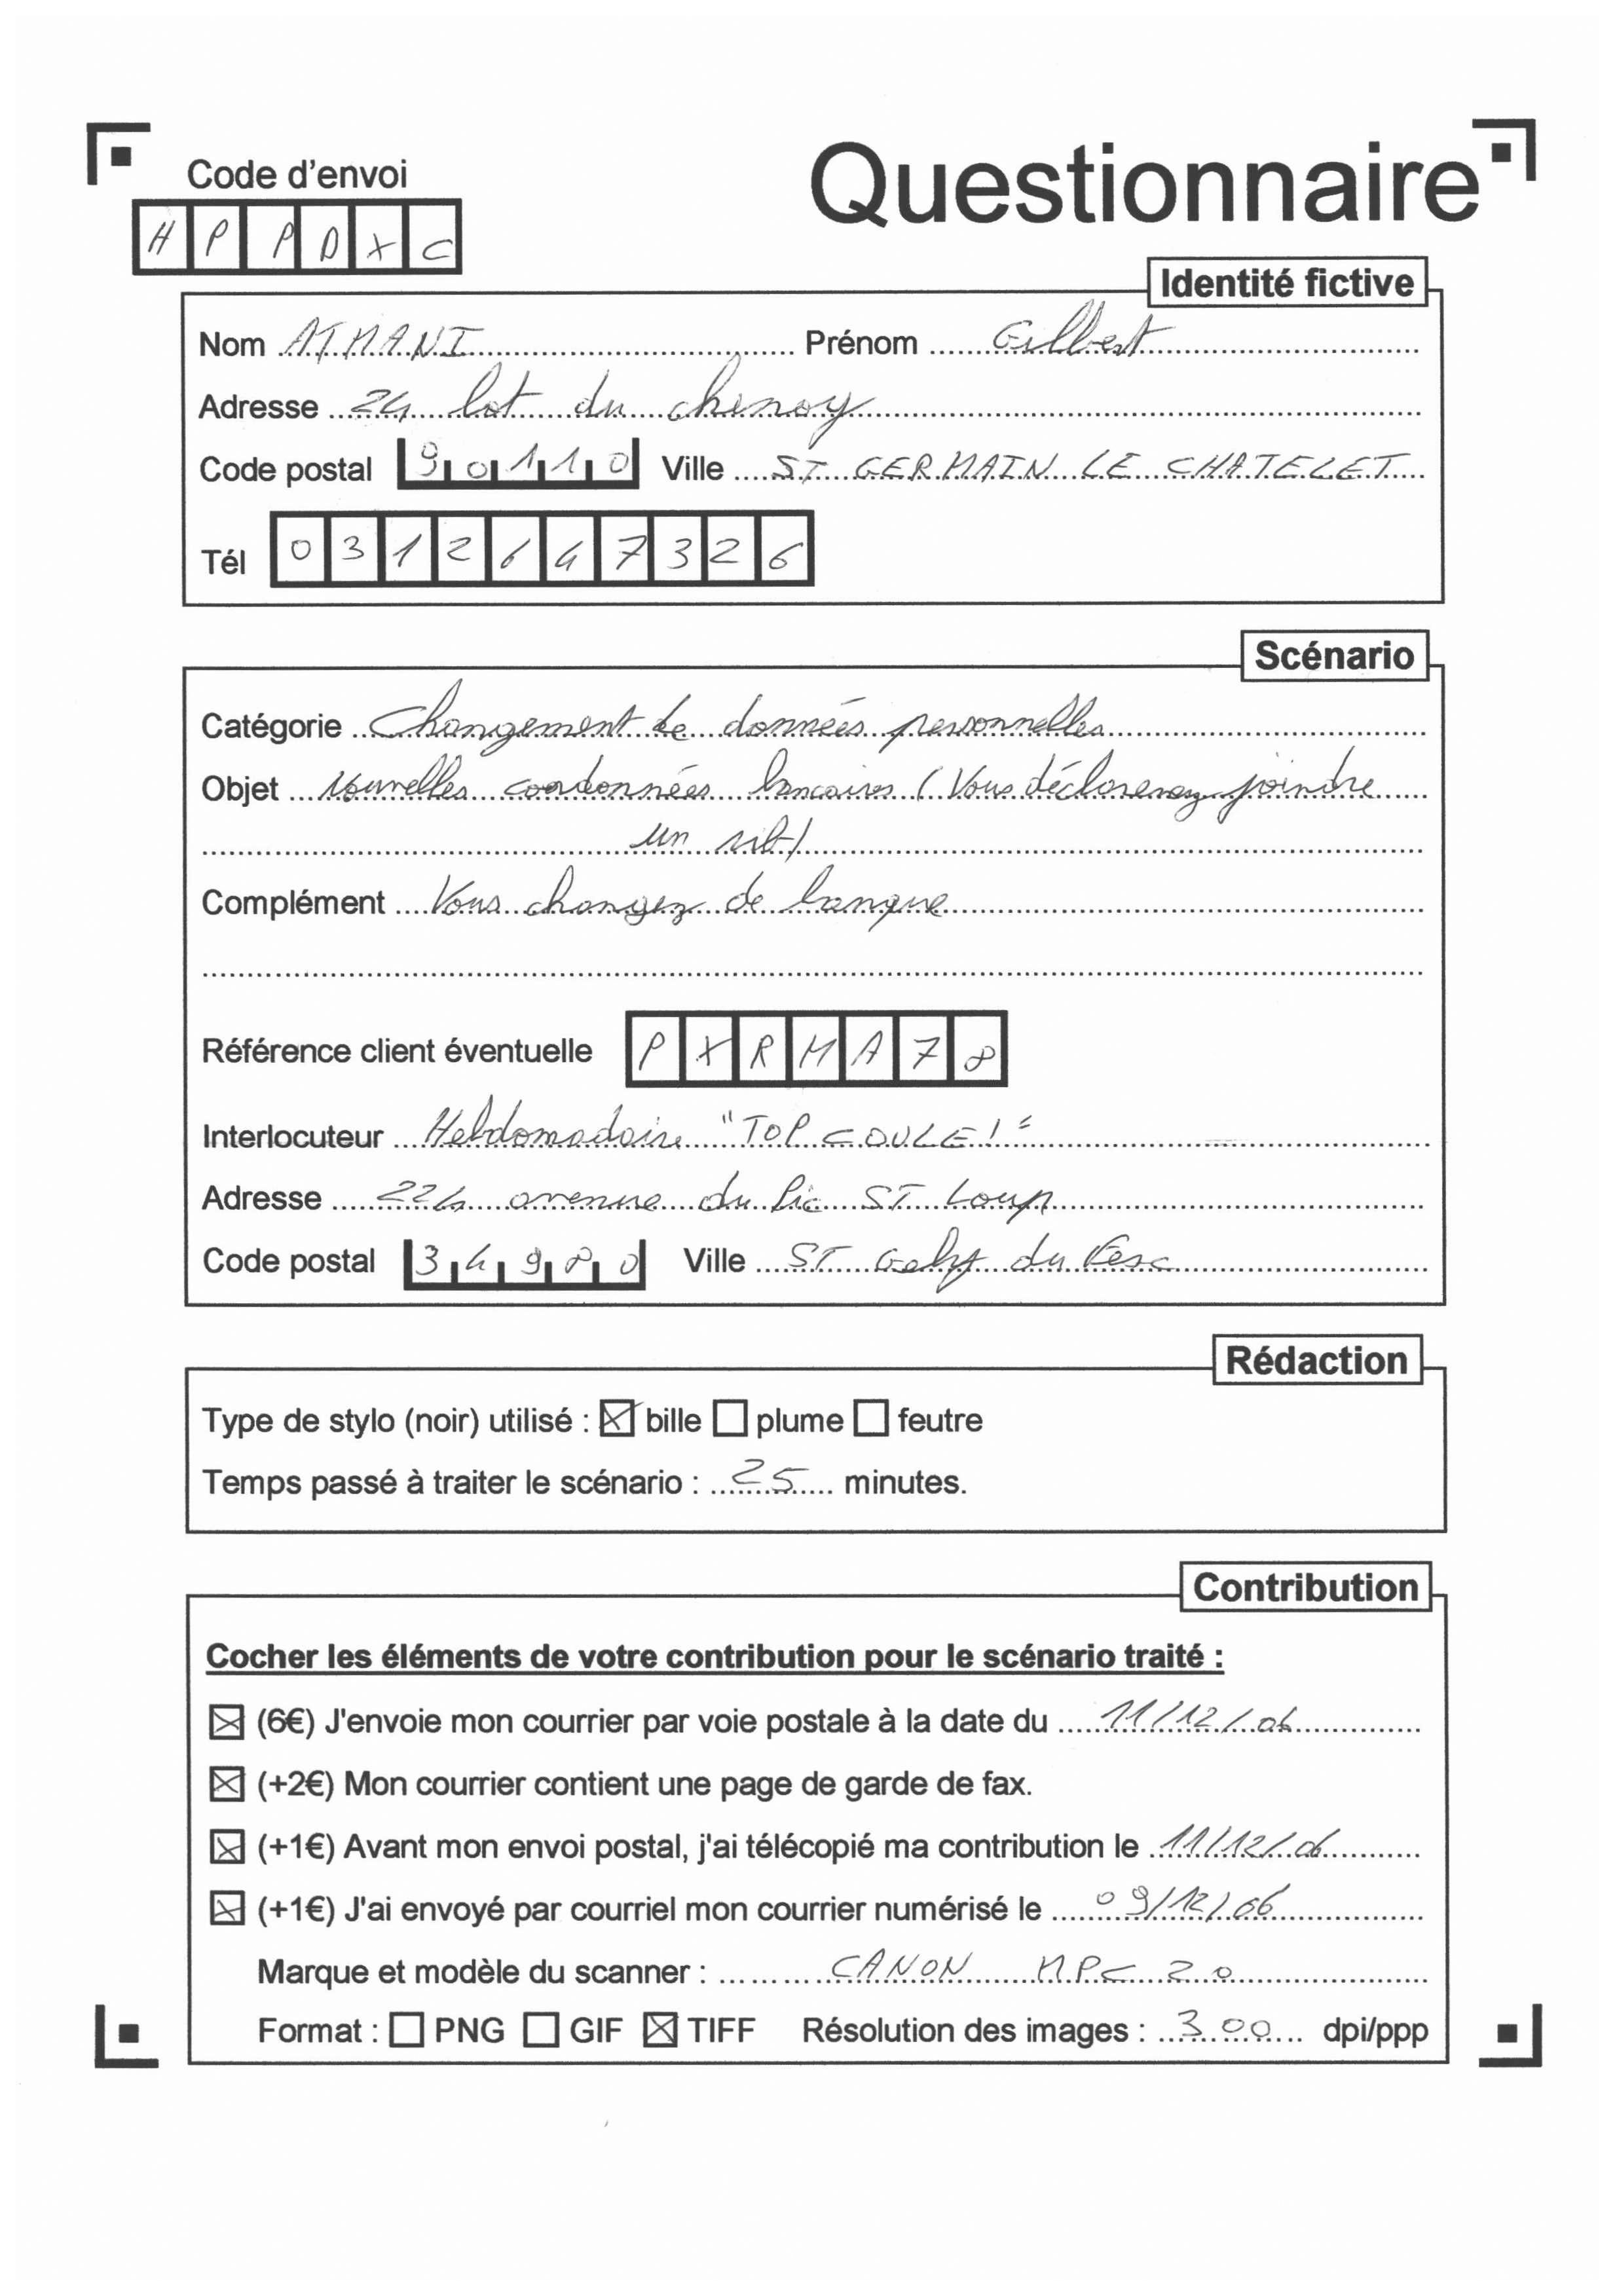 Code d'envoi
Questionnaire
H P P D X C
Identité fictive
Nom ATMANI Prénom Gilbert
Adresse 24 lot du chenoy
Code postal 90110 Ville ST GERMAIN LE CHATELET
Tél 0312647326
Scénario
Catégorie Changement de données personnelles
Objet Nouvelles coordonnées bancaires (Vous déclarerez joindre
un rib)
Complément Vous changez de banque
Référence client éventuelle P X R M A 7 8
Interlocuteur Hebdomadaire "TOP COULE!"
Adresse 224 avenue du Pic ST Loup
Code postal 34980 Ville ST Gely du Fesc
Rédaction
Type de stylo (noir) utilisé : ☒ bille ☐ plume ☐ feutre
Temps passé à traiter le scénario : 25 minutes.
Contribution
Cocher les éléments de votre contribution pour le scénario traité :
☒ (6€) J'envoie mon courrier par voie postale à la date du 11/12/06
☒ (+2€) Mon courrier contient une page de garde de fax.
☒ (+1€) Avant mon envoi postal, j'ai télécopié ma contribution le 11/12/06
☒ (+1€) J'ai envoyé par courriel mon courrier numérisé le 09/12/06
Marque et modèle du scanner : CANON MPC 20
Format : ☐ PNG ☐ GIF ☒ TIFF Résolution des images : 300 dpi/ppp